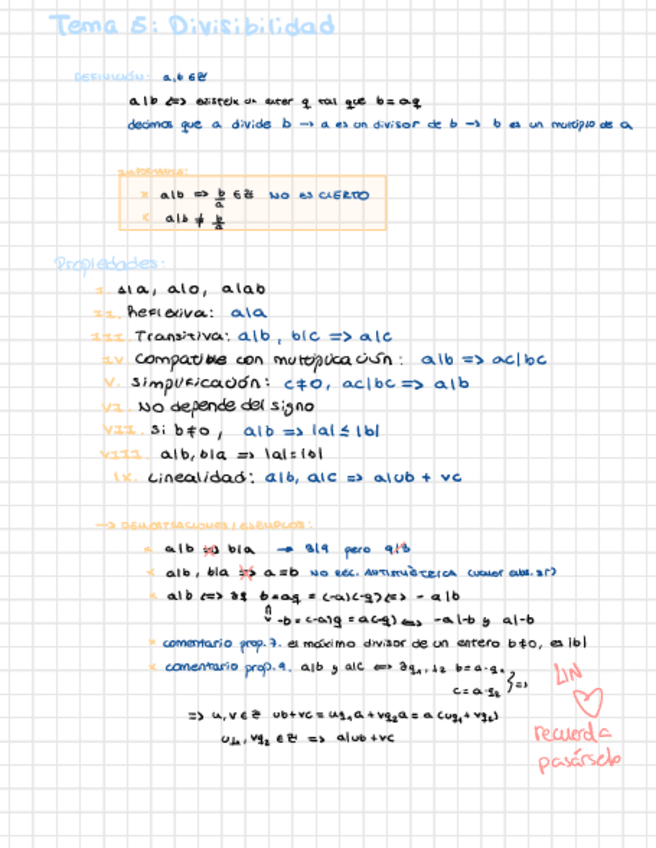 Tema 5: Divisibilidad
DEFINICIÓN: a,b ∈ ℤ
a|b <=> existeix un enter q tal que b = aq
decimos que a divide b → a es un divisor de b → b es un multiplo de a
× a|b => b/a ∈ ℤ NO ES CIERTO
× a|b ≠ b/a
Propiedades:
I. 1|a, a|0, a|ab
II. Reflexiva: a|a
III. Transitiva: a|b, b|c => a|c
IV. Compatible con multiplicación: a|b => ac|bc
V. Simplificación: c≠0, ac|bc => a|b
VI. No depende del signo
VII. Si b≠0, a|b => |a| ≤ |b|
VIII. a|b, b|a => |a|=|b|
IX. Linealidad: a|b, a|c => a|ub + vc
→ DEMOSTRACIONES/EJEMPLOS:
× a|b => b|a → 3|9 pero 9|3
× a|b, b|a => a=b NO REC. ANTISIMÉTRICA (valor abs. sí)
× a|b <=> ∃q b=aq = (-a)(-q) <=> -a|b
-b = (-a)q = a(-q) <=> -a|-b y a|-b
× comentario prop. 7. el máximo divisor de un entero b≠0, es |b|
× comentario prop. 9. a|b y a|c <=> ∃q₁, q₂ b = a·q₁
c = a·q₂ } =>
=> u,v ∈ ℤ ub+vc = uq₁a + vq₂a = a(uq₁ + vq₂)
uq₁, vq₂ ∈ ℤ => a|ub+vc
LIN
♡
recuerda
pasárselo